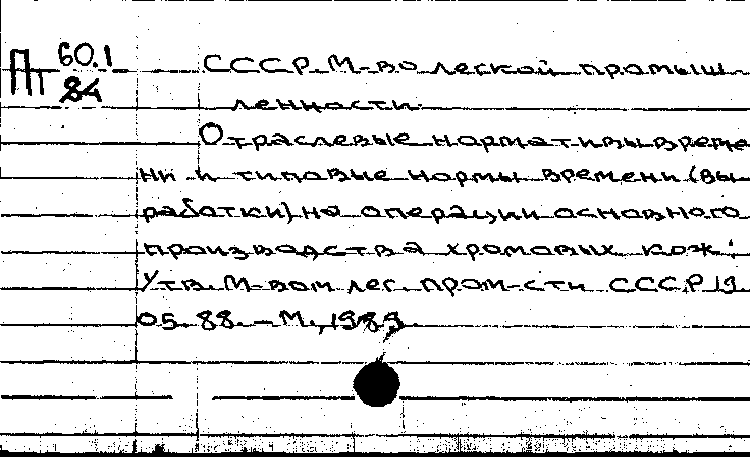 Пт 60.1
84
СССР. М-во легкой промыш-
ленности.
Отраслевые нормативы време
ни и типовые нормы времени (вы
работки) на операции основного
производства хромовых кож:
Утв. М-вом лег. пром-сти СССР 19.
05.88. - М., 1989.